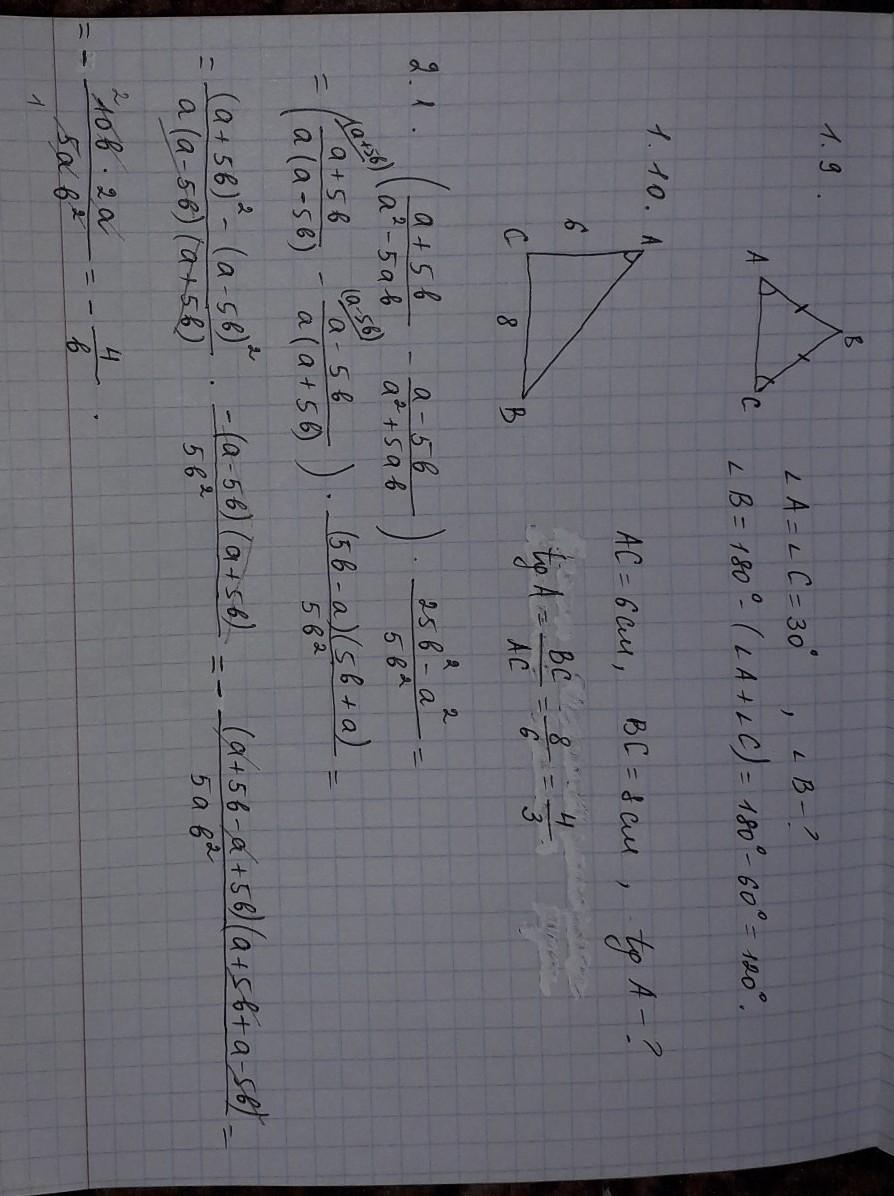 1.9.
B
A
C
∠A = ∠C = 30°, ∠B - ?
∠B = 180° - (∠A + ∠C) = 180° - 60° = 120°.
1.10.
A
6
C
8
B
AC = 6 см, BC = 8 см, tg A - ?
tg A = BC/AC = 8/6 = 4/3.
2.1. ((a+5b)/(a²-5ab) - (a-5b)/(a²+5ab)) · (25b²-a²)/(5b²) =
= ((a+5b)/(a(a-5b)) (a+5b) - (a-5b)/(a(a+5b)) (a-5b)) · ((5b-a)(5b+a))/(5b²) =
= ((a+5b)² - (a-5b)²)/(a(a-5b)(a+5b)) · (-(a-5b)(a+5b))/(5b²) = - ((a+5b-a+5b)(a+5b+a-5b))/(5ab²) =
= - (10b · 2a)/(5ab²) = - 4/b.
2
1